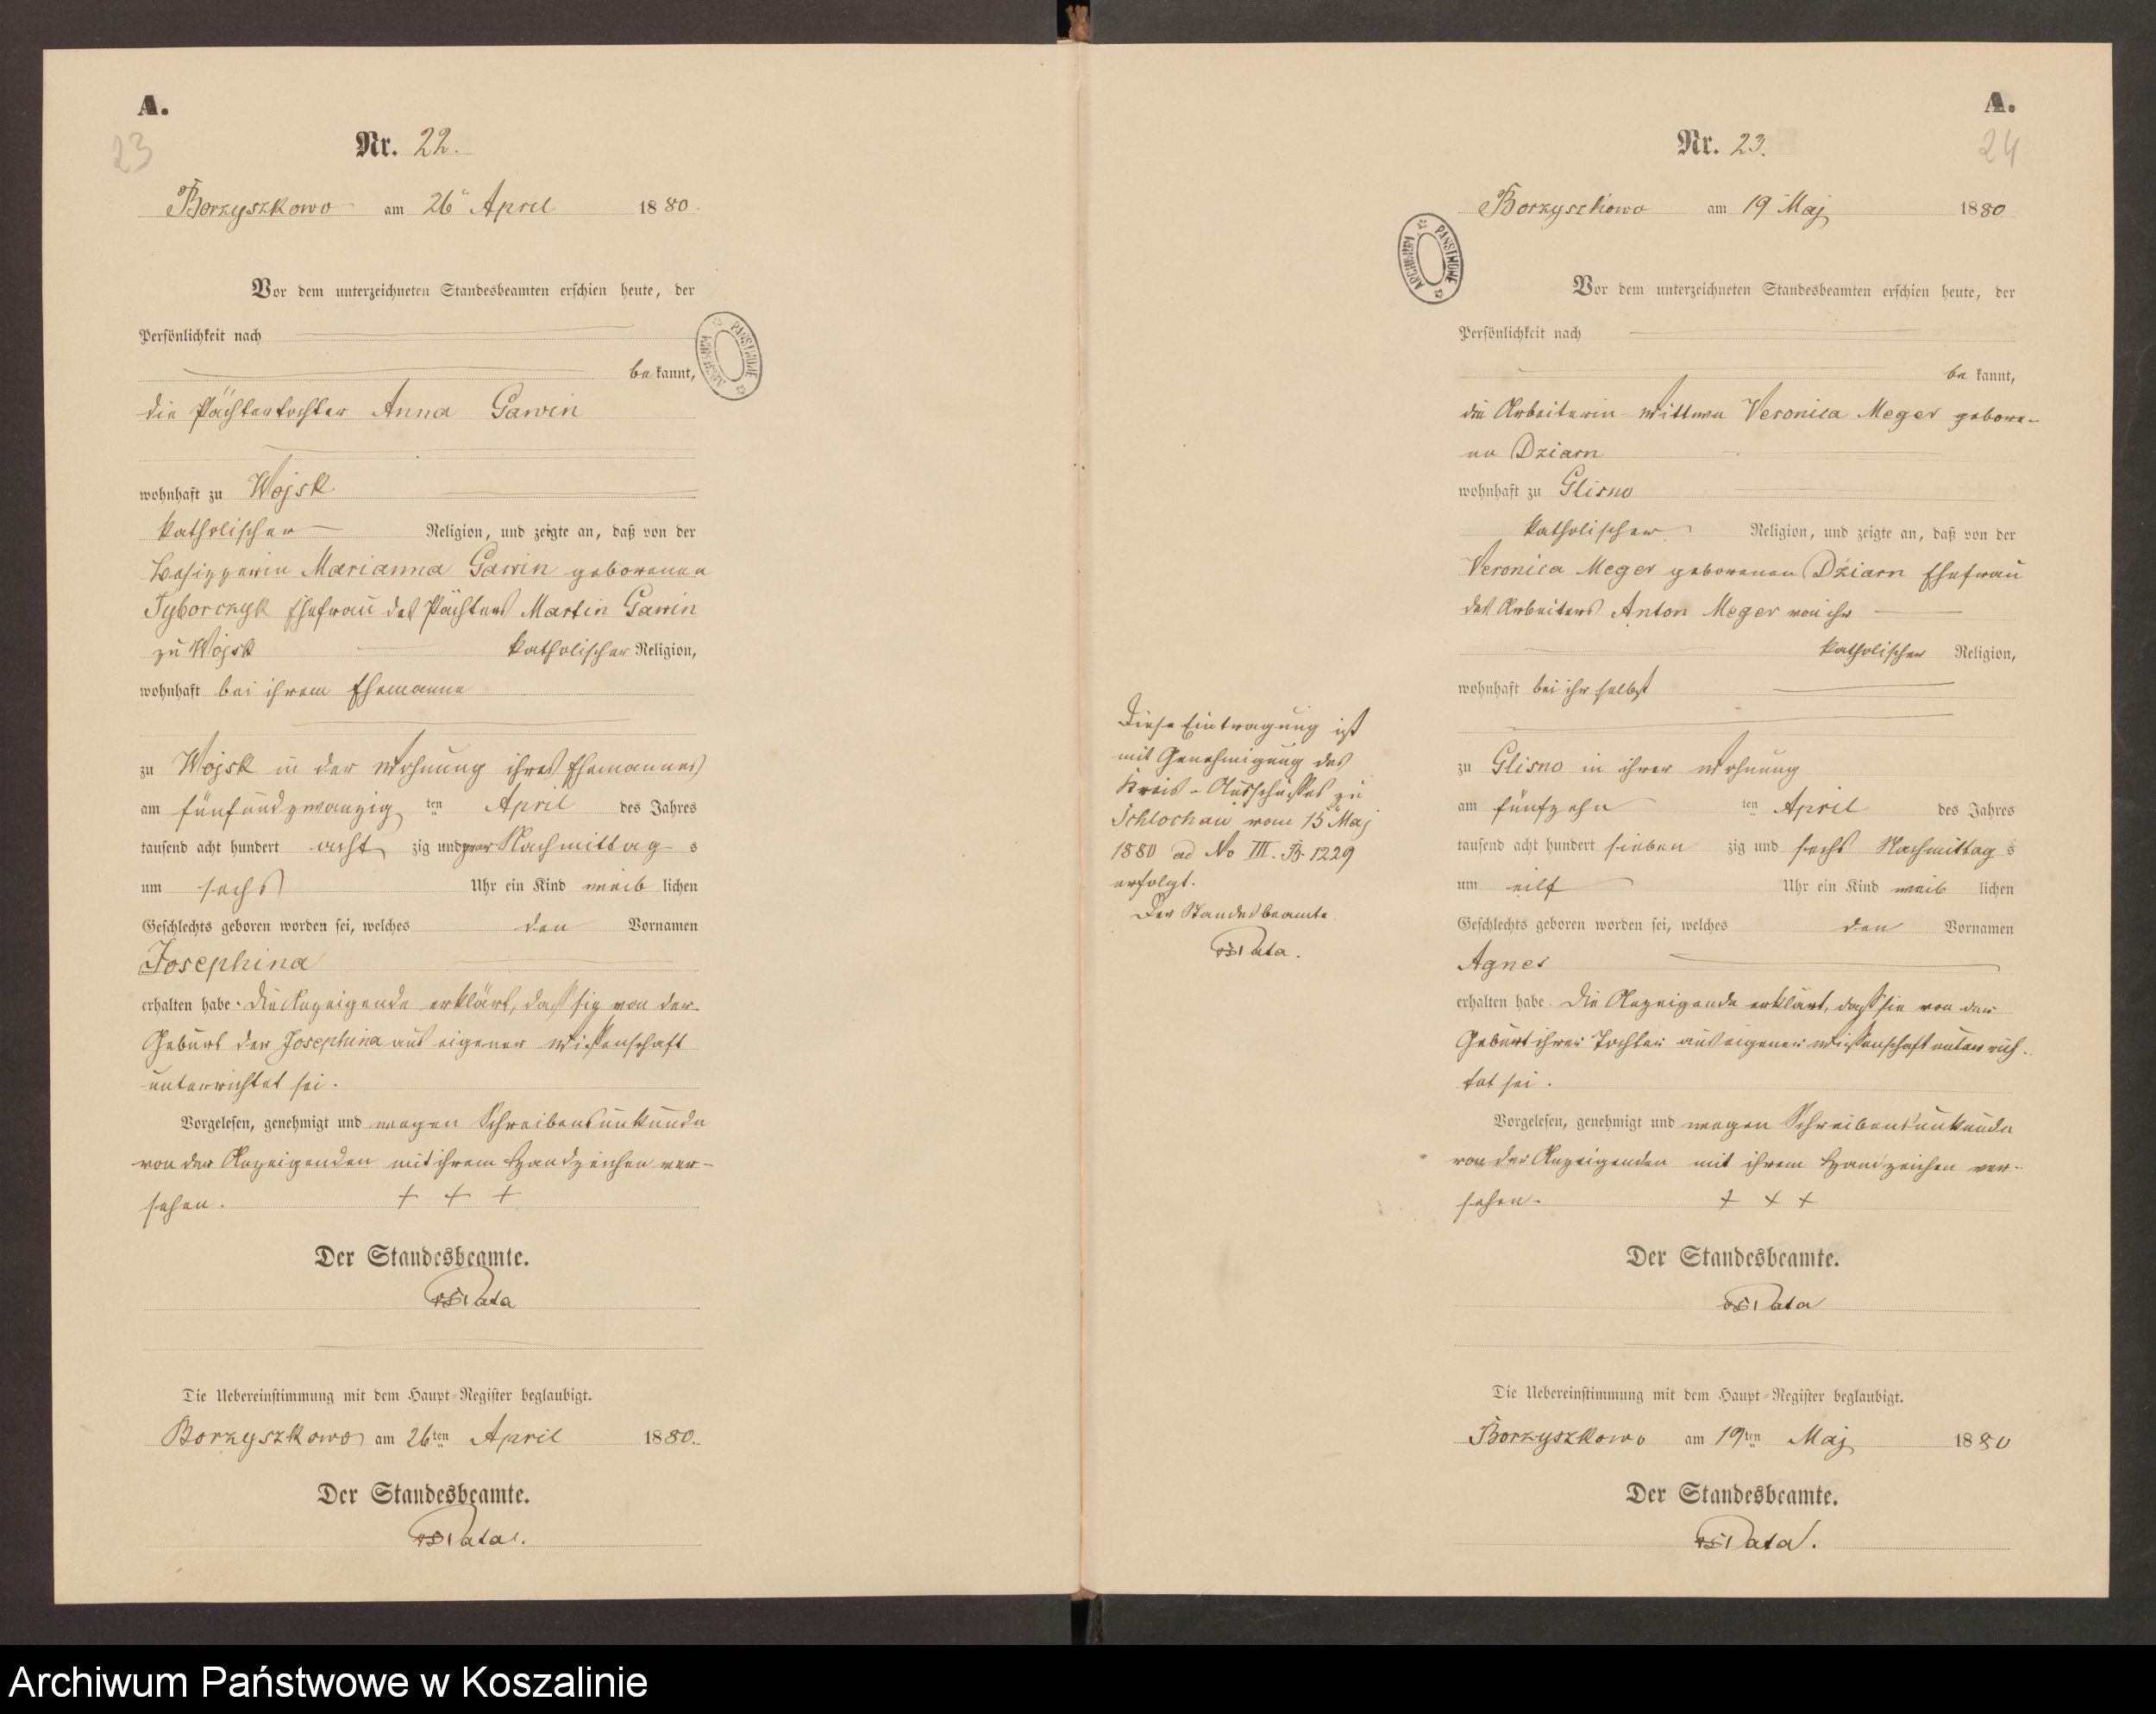 A.
23
Nr. 22.
Borzyszkowo am 26ᵗᵉⁿ April 1880.
Vor dem unterzeichneten Standesbeamten erschien heute, der
Persönlichkeit nach
bekannt,
die Pächtertochter Anna Gawin
wohnhaft zu Wojsk
katholischer Religion, und zeigte an, daß von der
Marianna Gawin geborenen
Tyborczyk Ehefrau des Pächters Martin Gawin
zu Wojsk katholischer Religion,
wohnhaft bei ihrem Ehemanne
zu Wojsk in der Wohnung ihres Ehemannes
am fünfundzwanzig ten April des Jahres
tausend acht hundert acht zig und Nachmittag s
um sechs Uhr ein Kind weib lichen
Geschlechts geboren worden sei, welches den Vornamen
Josephina
erhalten habe. Die Anzeigende erklärt, daß sie von der
Geburt der Josephina aus eigener Wissenschaft
unterrichtet sei.
Vorgelesen, genehmigt und wegen Schreibensunkunde
von der Anzeigenden mit ihrem Handzeichen ver-
sehen. + + +
Der Standesbeamte.
Pata
Die Uebereinstimmung mit dem Haupt-Register beglaubigt.
Borzyszkowo am 26ten April 1880.
Der Standesbeamte.
Pata.
ARCHIWUM PAŃSTWOWE
A.
24
Nr. 23.
Borzyszkowo am 19 Maj 1880
ARCHIWUM PAŃSTWOWE
Vor dem unterzeichneten Standesbeamten erschien heute, der
Persönlichkeit nach
be kannt,
die Arbeiterin-Wittwe Veronica Meger gebore-
ne Dziarn
wohnhaft zu Glisno
katholischer Religion, und zeigte an, daß von der
Veronica Meger geborenen Dziarn Ehefrau
des Arbeiters Anton Meger von ihr
katholischer Religion,
wohnhaft bei ihr selbst
zu Glisno in ihrer Wohnung
am fünfzehn ten April des Jahres
tausend acht hundert sieben zig und sechs Nachmittag s
um eilf Uhr ein Kind weib lichen
Geschlechts geboren worden sei, welches den Vornamen
Agnes
erhalten habe. Die Anzeigende erklärt, daß sie von der
Geburt ihrer Tochter aus eigener Wissenschaft unterrich-
tet sei.
Vorgelesen, genehmigt und wegen Schreibensunkunde
von der Anzeigenden mit ihrem Handzeichen ver-
sehen. + + +
Der Standesbeamte.
Pata
Die Uebereinstimmung mit dem Haupt-Register beglaubigt.
Borzyszkowo am 19ten Maj 1880
Der Standesbeamte.
Pata.
Diese Eintragung ist
mit Genehmigung des
Kreis-Ausschusses zu
Schlochau vom 15 Maj
1880 ad No III. B. 1229
erfolgt.
Der Standesbeamte.
Pata.
Archiwum Państwowe w Koszalinie